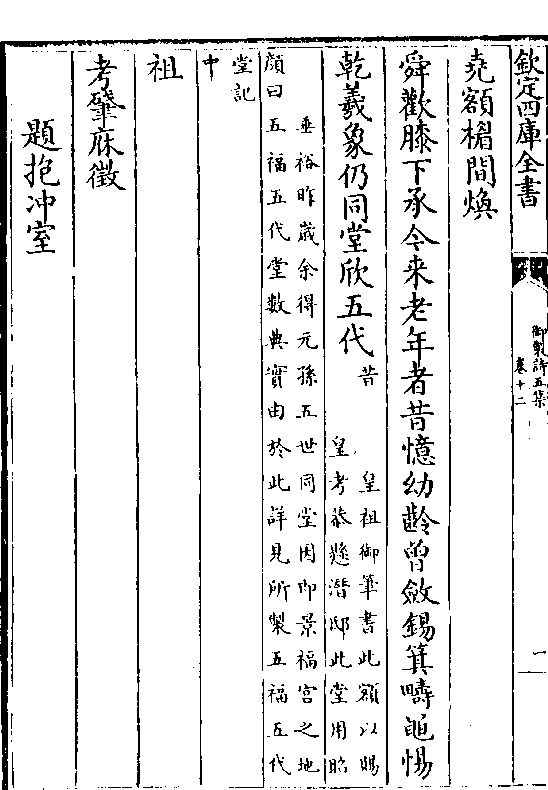 欽定四庫全書
御製詩五集
卷十二
一
堯額楣間煥
舜歡膝下承今来老年者昔憶幼齡曾斂錫箕疇
乾羲象仍同堂欣五代
昔 皇祖御筆書此額以賜
皇考恭懸潛邸此堂用昭
垂裕昨歳余得元孫五世同堂因即景福宫之地
顔曰五福五代堂數典實由於此詳見所製五福五代
堂記
中
祖
考肇庥徵
題抱冲室